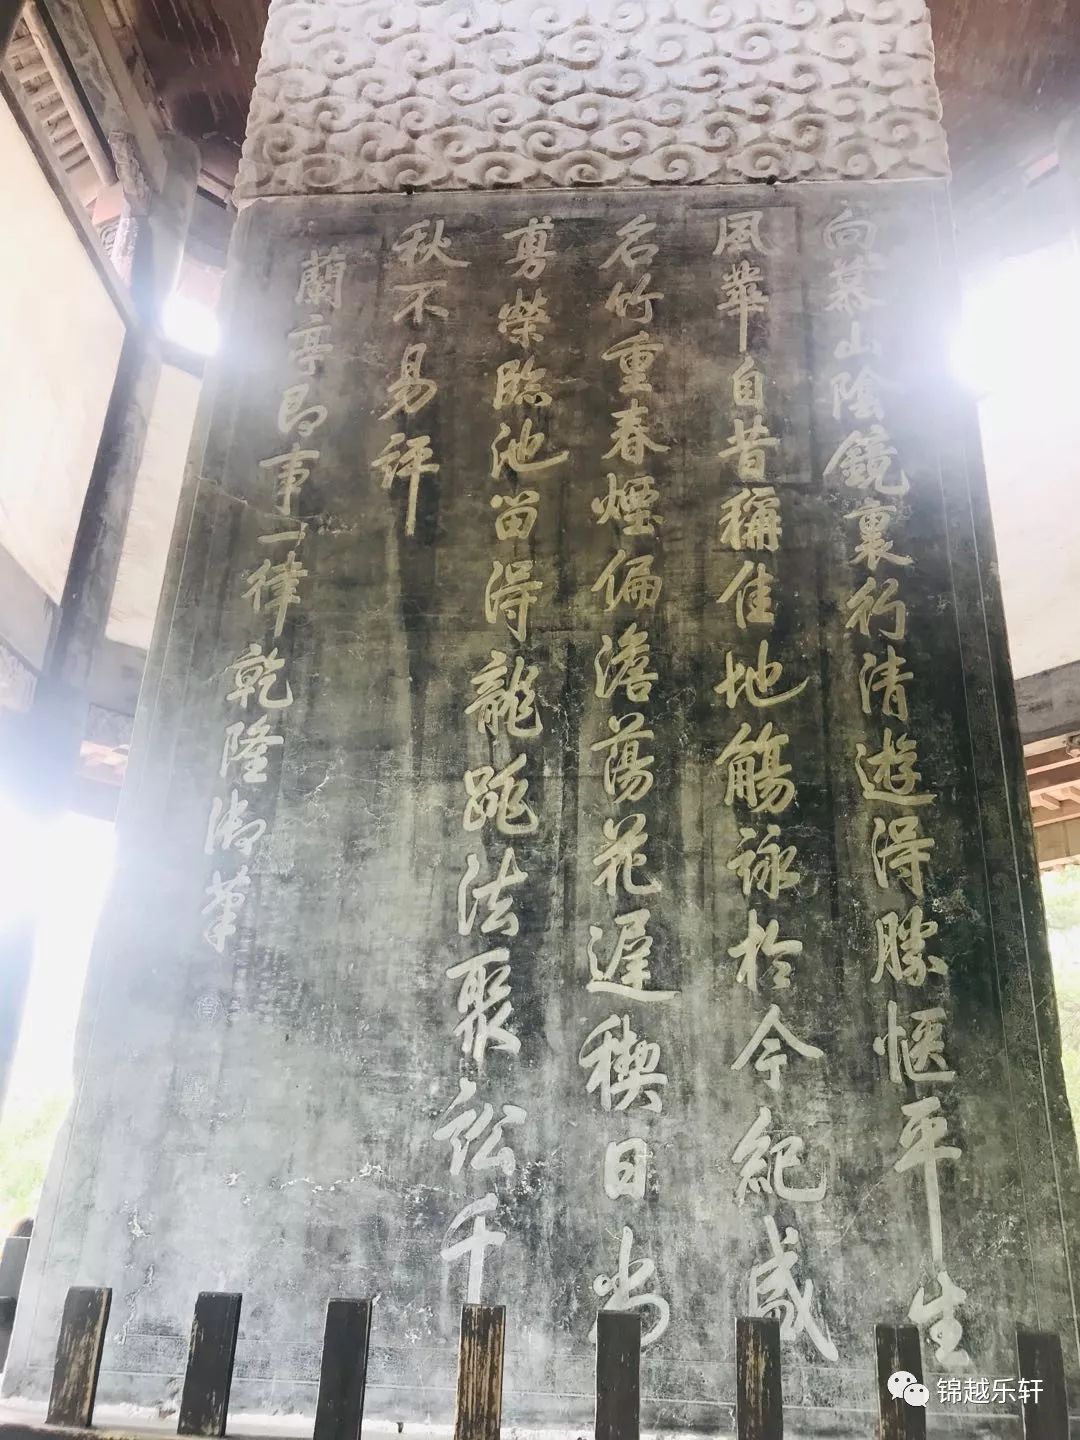 向慕山陰鏡裏行清遊得勝愜平生
風華自昔稱佳地觴詠於今紀盛
名竹重春煙偏澹蕩花遲禊日尚
旉榮臨池留得龍跳法聚訟千
秋不易評
蘭亭即事一律乾隆御筆
锦越乐轩